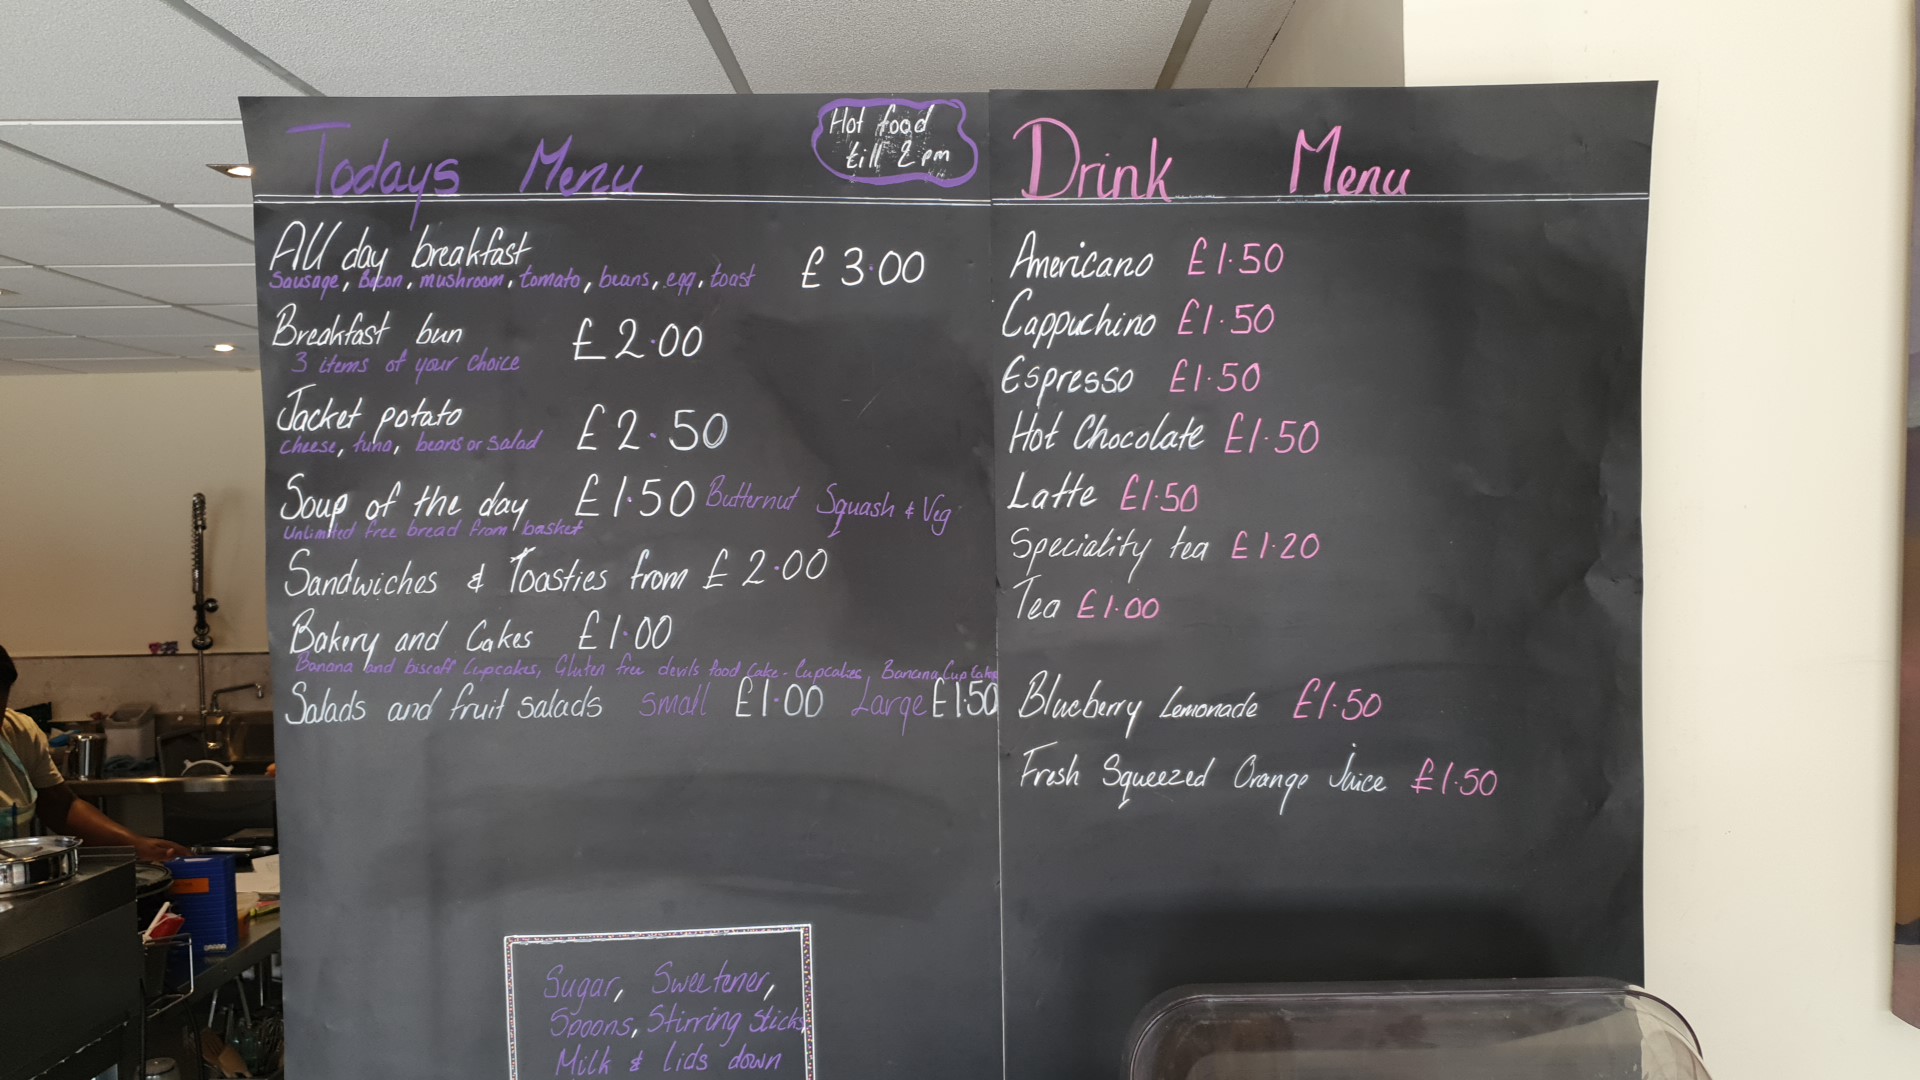 Todays Menu
Hot food
till 2pm
All day breakfast £3.00
Sausage, Bacon, mushroom, tomato, beans, egg, toast
Breakfast bun £2.00
3 items of your choice
Jacket potato £2.50
cheese, tuna, beans or salad
Soup of the day £1.50 Butternut Squash & Veg
Unlimited free bread from basket
Sandwiches & Toasties from £2.00
Bakery and Cakes £1.00
Banana and biscoff Cupcakes, Gluten free devils food Cake - Cupcakes, Banana Cup Cakes
Salads and fruit salads small £1.00 Large £1.50
Sugar, Sweetener,
Spoons, Stirring Sticks
Milk & Lids down
Drink Menu
Americano £1.50
Cappuchino £1.50
Espresso £1.50
Hot Chocolate £1.50
Latte £1.50
Speciality tea £1.20
Tea £1.00
Blueberry Lemonade £1.50
Fresh Squeezed Orange Juice £1.50